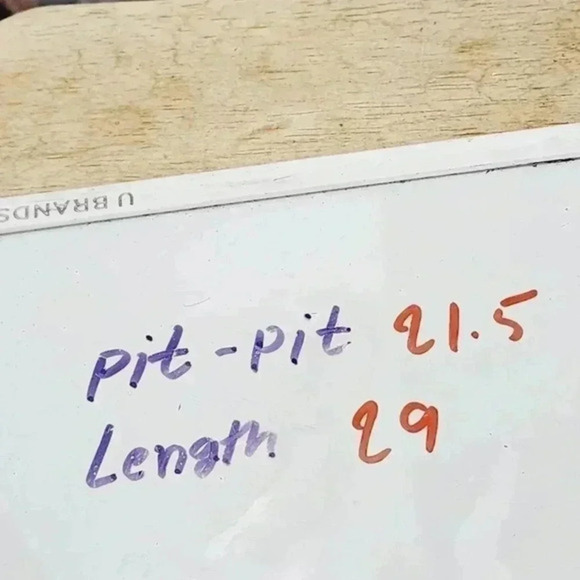 U BRANDS
pit-pit 21.5
Length 29